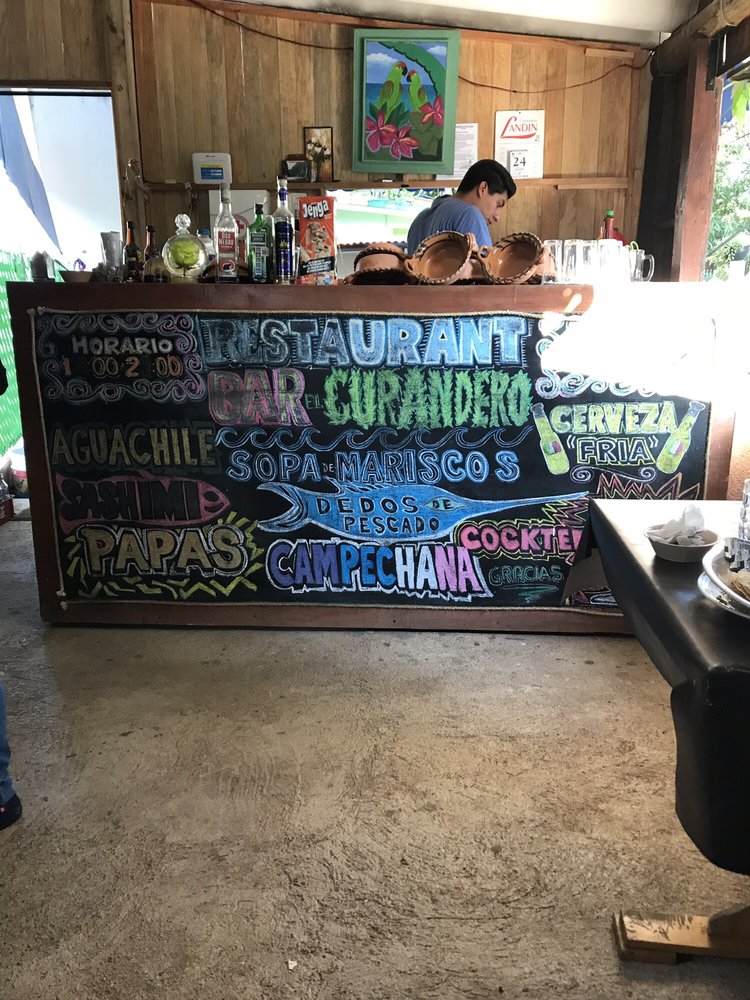 LANDIN
24
Jenga
HORARIO
RESTAURANT
BAR EL CURANDERO
CERVEZA
"FRIA"
AGUACHILE
SOPA DE MARISCOS
SASHIMI
DEDOS DE
PESCADO
PAPAS
CAMPECHANA
GRACIAS